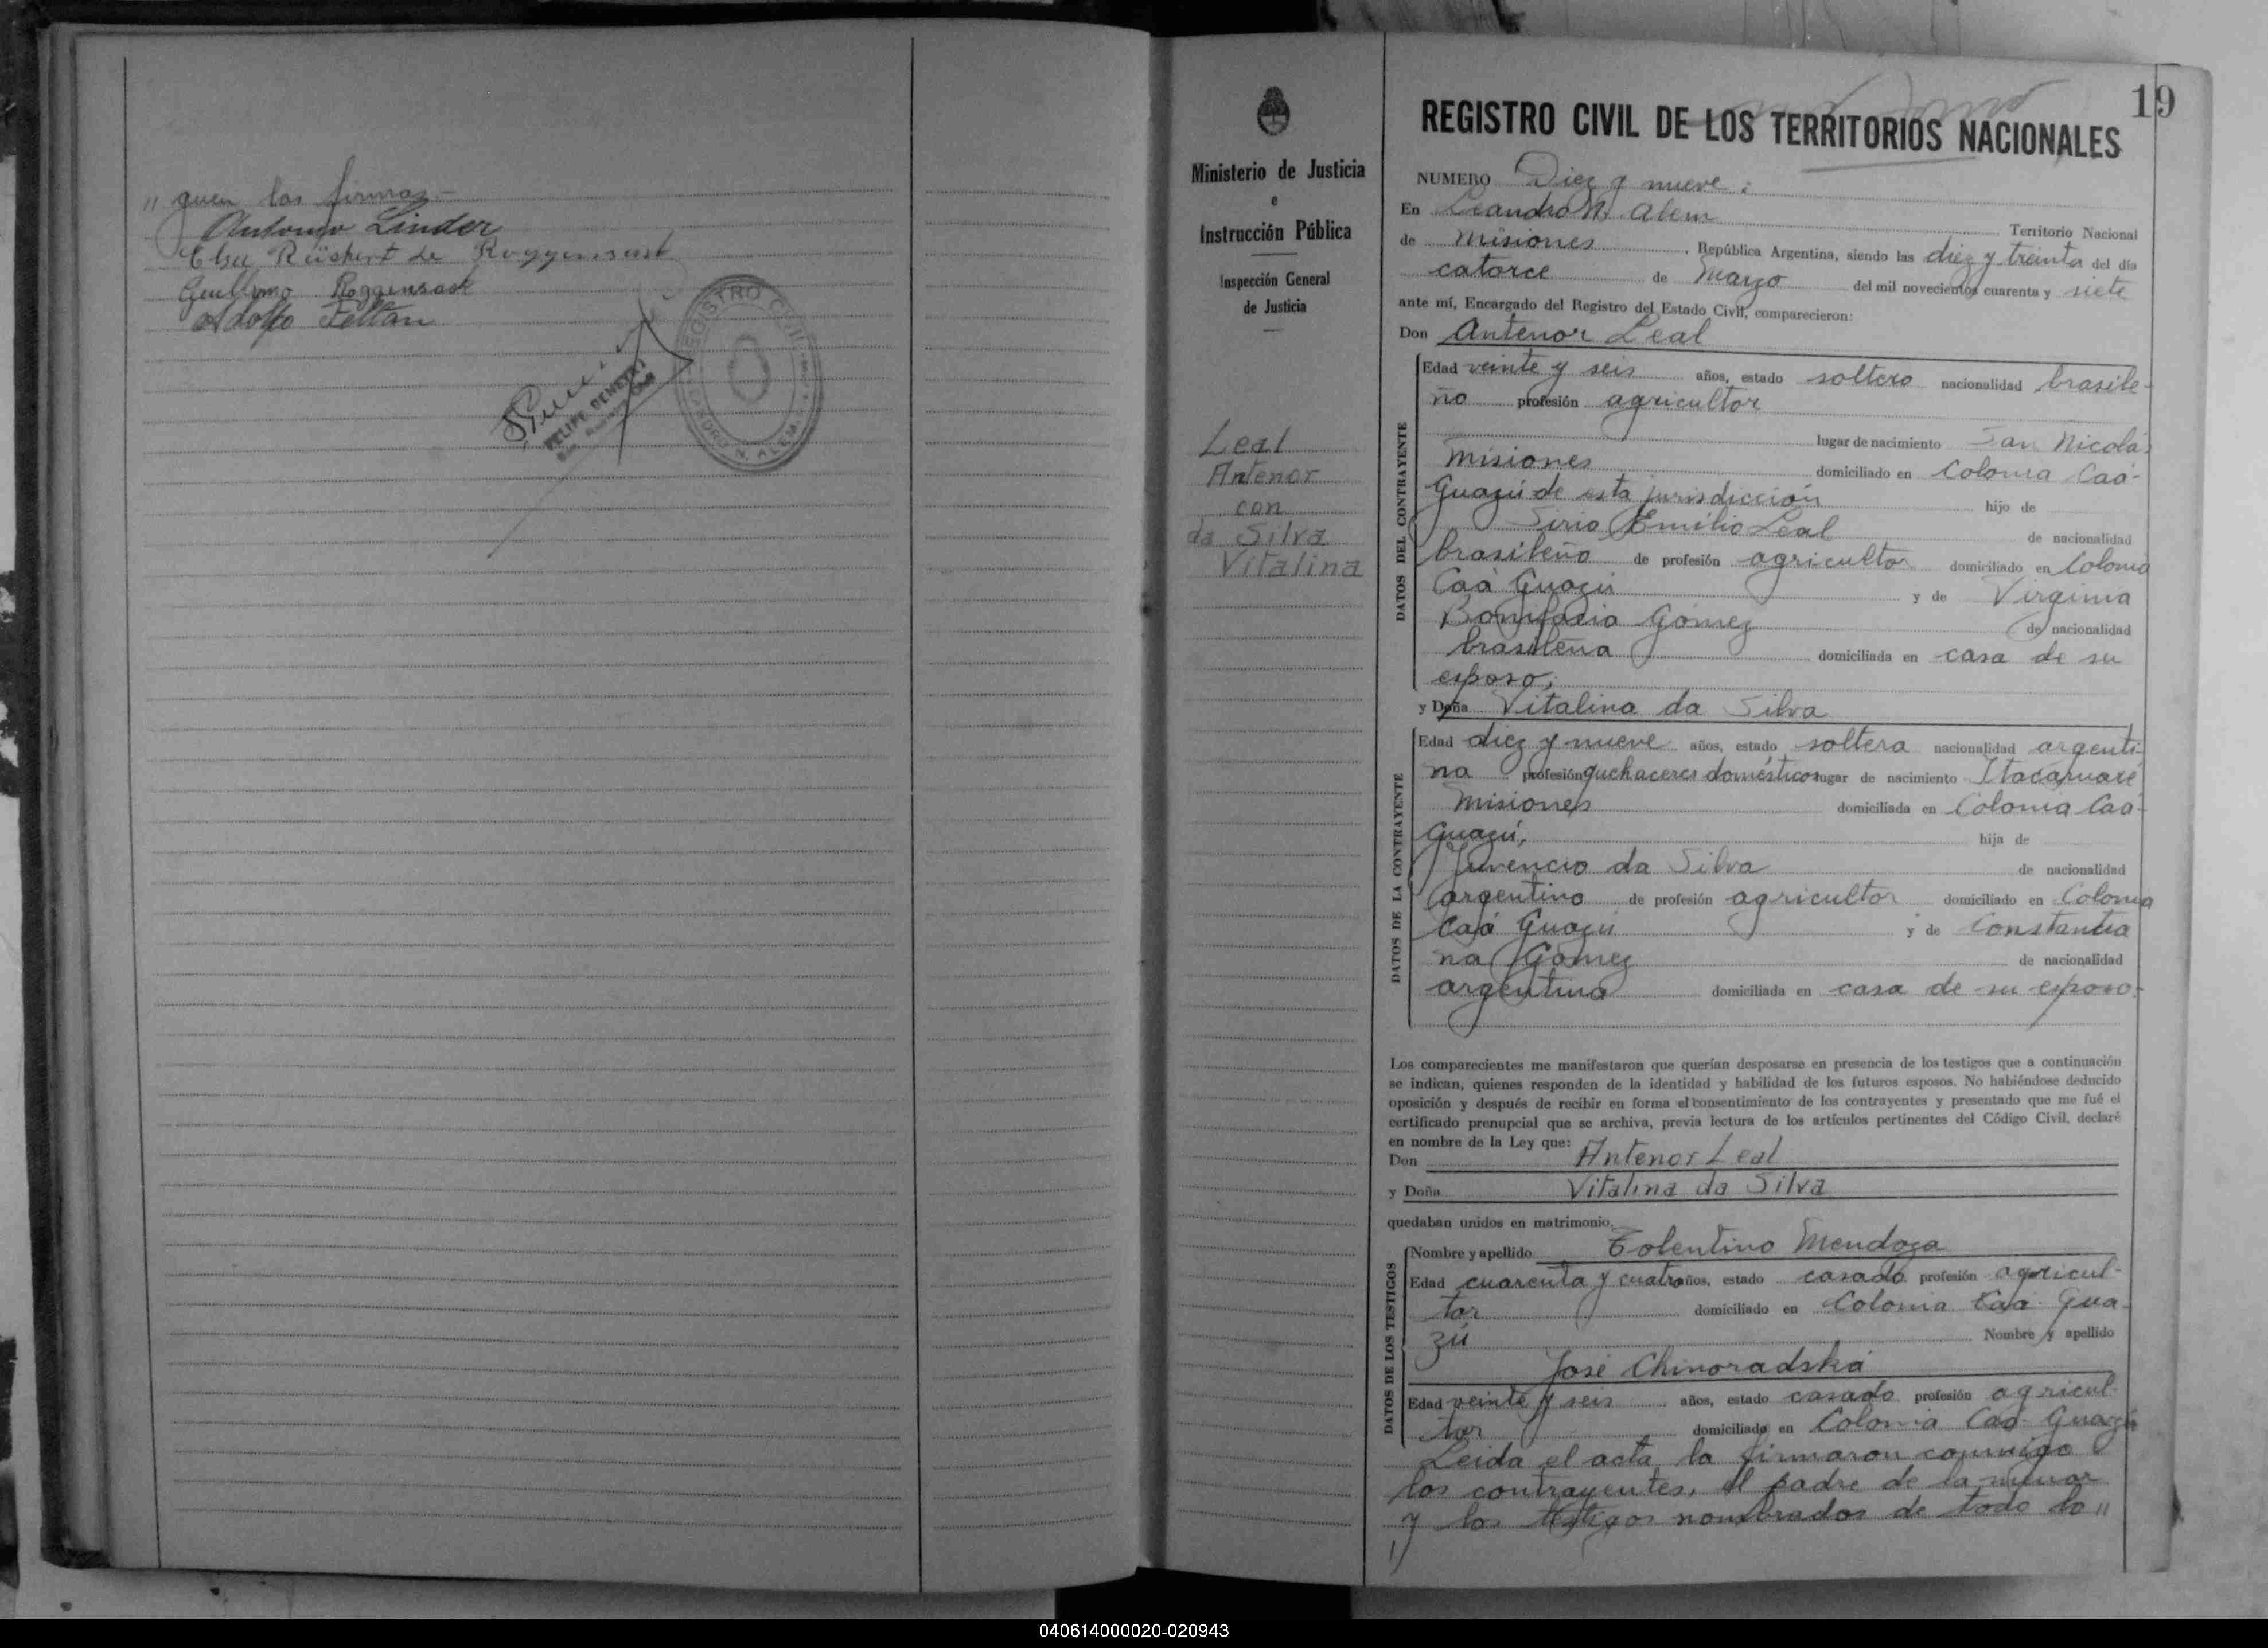 " guen las firmas-
Antonio Linder
Elsa Reichert de Roggensack
Guillermo Roggensack
Adolfo Feltan
FELIPE BENITEZ
REGISTRO CIVIL
LEANDRO N. ALEM
Ministerio de Justicia
e
Instrucción Pública
Inspección General
de Justicia
Leal
Antenor
con
da Silva
Vitalina
19
REGISTRO CIVIL DE LOS TERRITORIOS NACIONALES
NUMERO Diez y nueve.
En Leandro N. Alem Territorio Nacional
de Misiones, República Argentina, siendo las diez y treinta del día
catorce de Marzo del mil novecientos cuarenta y siete
ante mí, Encargado del Registro del Estado Civil, comparecieron:
Don Antenor Leal
DATOS DEL CONTRAYENTE
Edad veinte y seis años, estado soltero nacionalidad brasile-
ño profesión agricultor
lugar de nacimiento San Nicolás
Misiones domiciliado en Colonia Caá-
Guazú de esta jurisdicción hijo de
Sirio Emilio Leal de nacionalidad
brasileño de profesión agricultor domiciliado en Colonia
Caá Guazú y de Virginia
Bonifacia Gómez de nacionalidad
brasileña domiciliada en casa de su
esposo;
y Doña Vitalina da Silva
DATOS DE LA CONTRAYENTE
Edad diez y nueve años, estado soltera nacionalidad argenti-
na profesión quehaceres domésticos lugar de nacimiento Itacaruaré
Misiones domiciliada en Colonia Caá-
Guazú, hija de
Juvencio da Silva de nacionalidad
argentino de profesión agricultor domiciliado en Colonia
Caá Guazú y de Constantia
na Gómez de nacionalidad
argentina domiciliada en casa de su esposo.-
Los comparecientes me manifestaron que querían desposarse en presencia de los testigos que a continuación
se indican, quienes responden de la identidad y habilidad de los futuros esposos. No habiéndose deducido
oposición y después de recibir en forma el consentimiento de los contrayentes y presentado que me fué el
certificado prenupcial que se archiva, previa lectura de los artículos pertinentes del Código Civil, declaré
en nombre de la Ley que:
Don Antenor Leal
y Doña Vitalina da Silva
quedaban unidos en matrimonio.
DATOS DE LOS TESTIGOS
Nombre y apellido Tolentino Mendoza
Edad cuarenta y cuatro años, estado casado profesión agricul-
tor domiciliado en Colonia Caá-Gua-
zú Nombre y apellido
José Chinoradská
Edad veinte y seis años, estado casado profesión agricul-
tor domiciliado en Colonia Caá-Guazú
Leida el acta la firmaron conmigo
los contrayentes, el padre de la menor
y los testigos nombrados de todo lo "
040614000020-020943